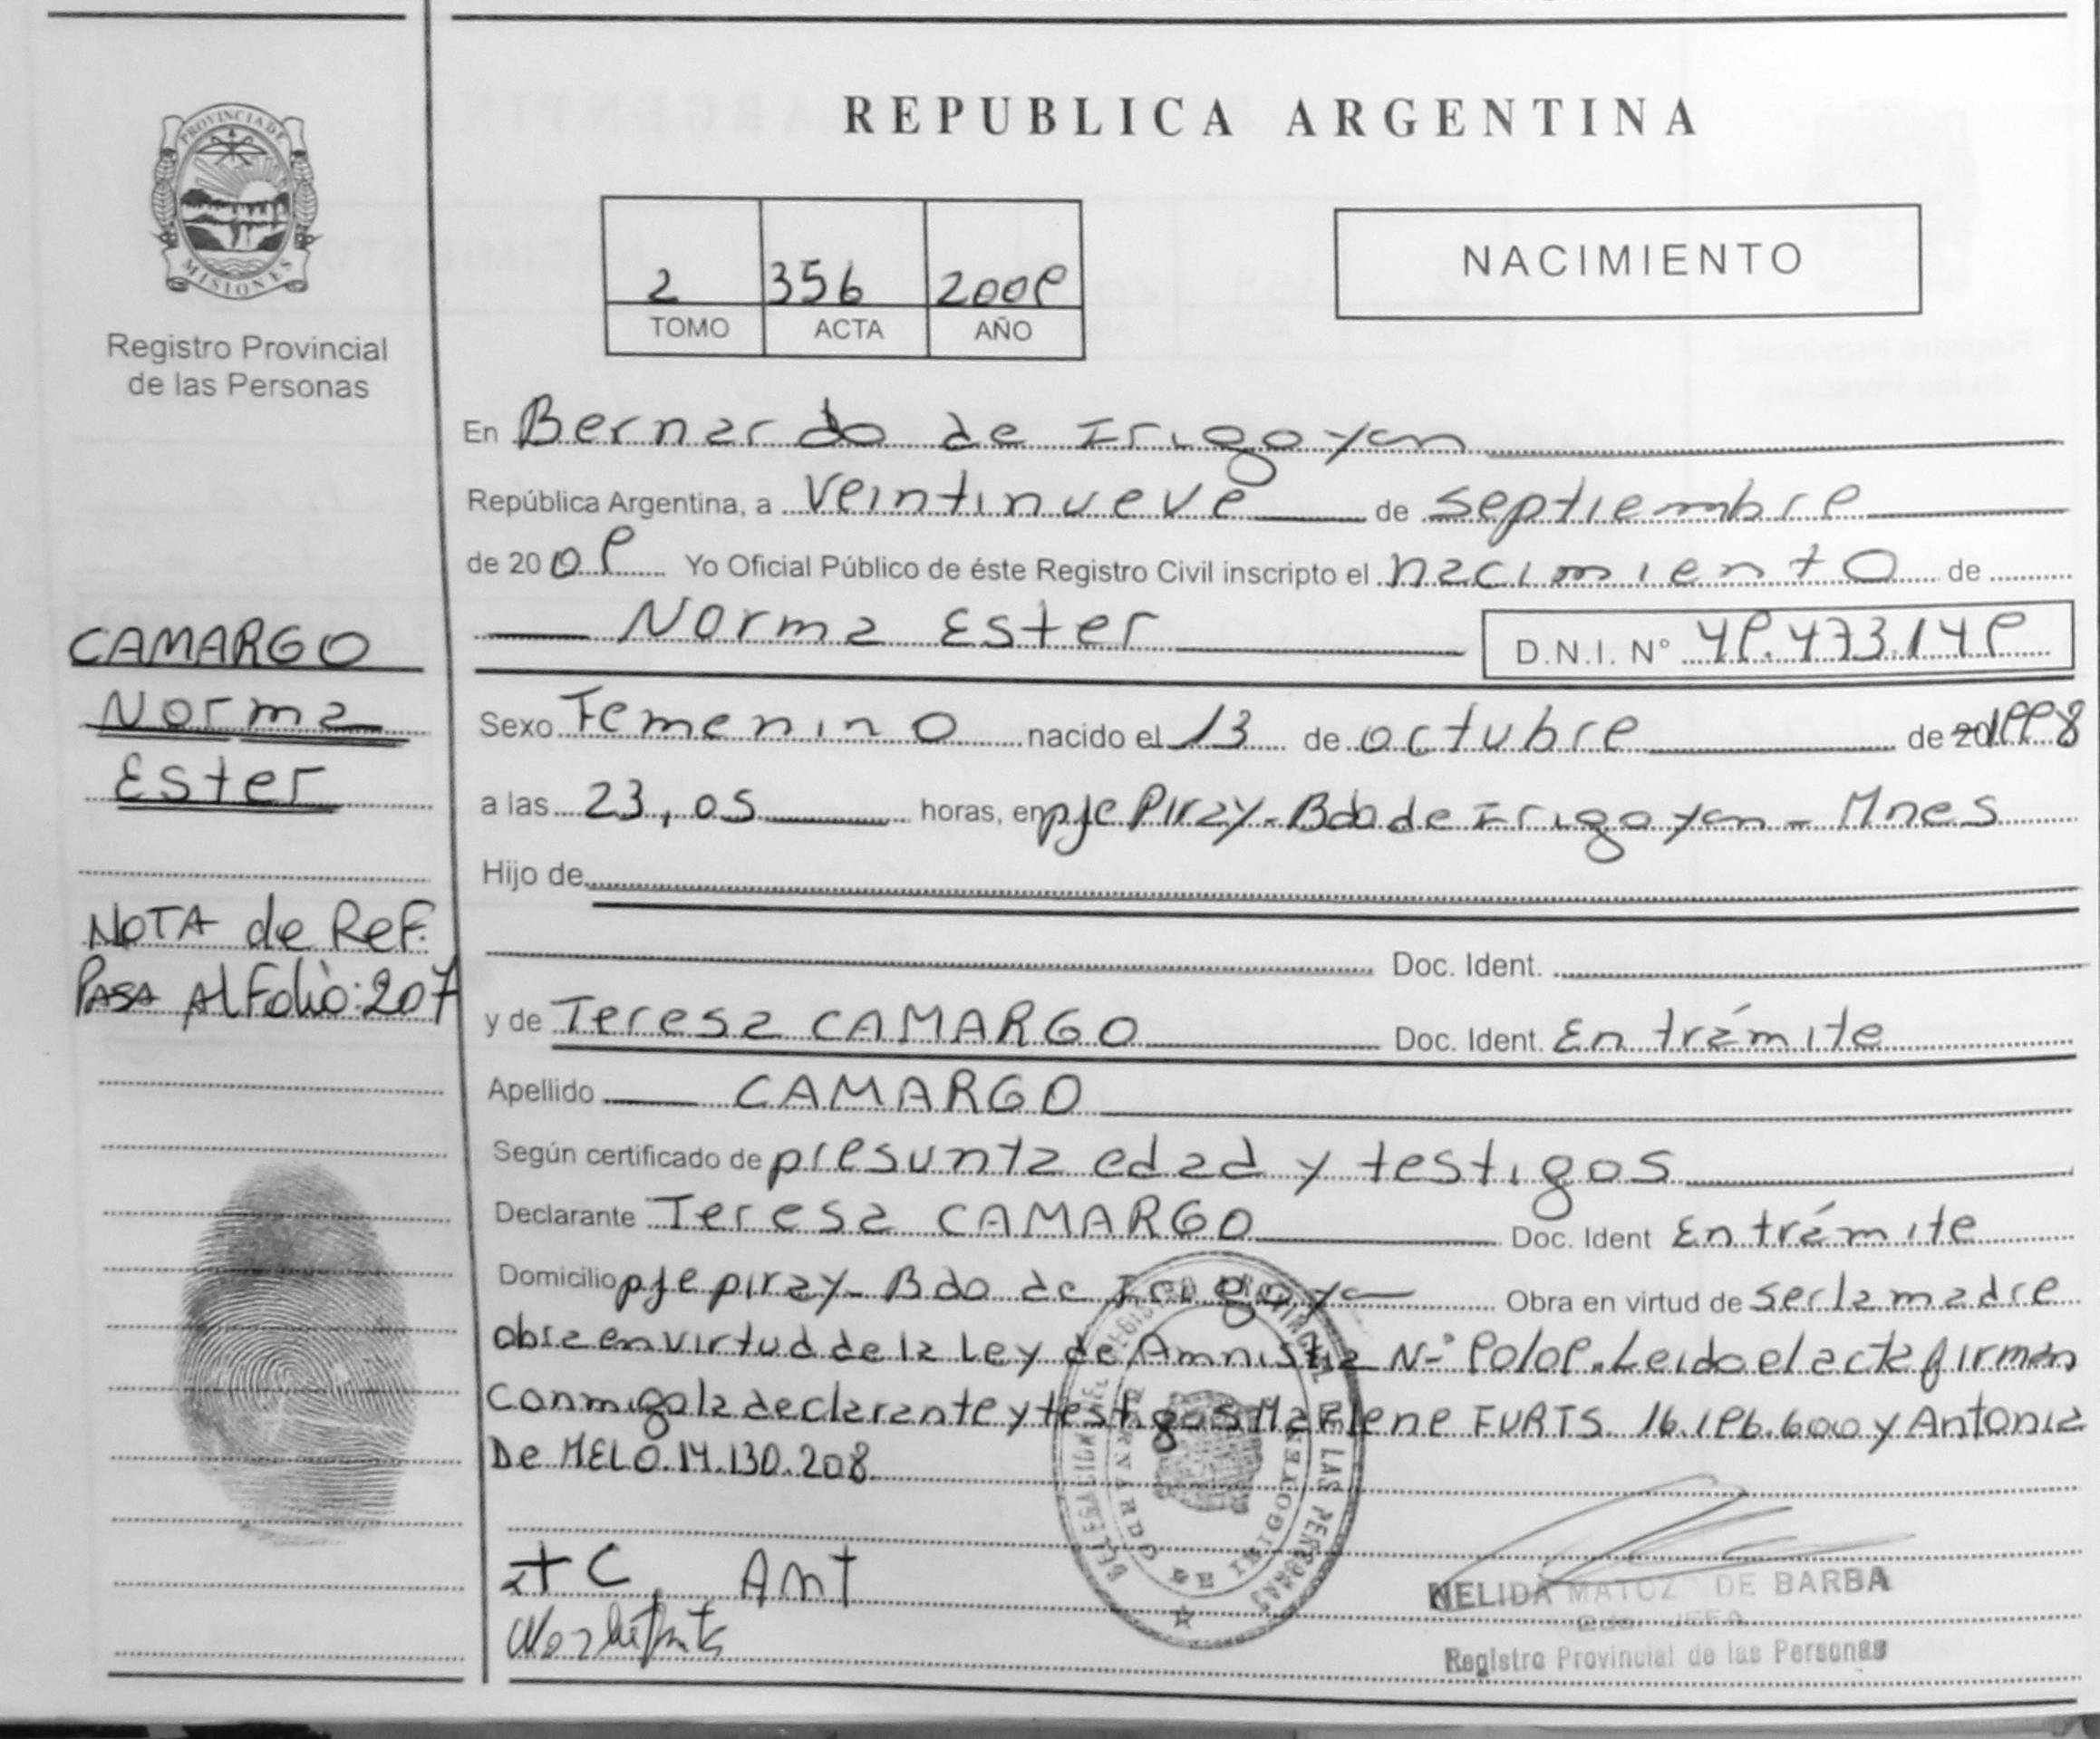 PROVINCIA DE
MISIONES
Registro Provincial
de las Personas
CAMARGO
Norma
Ester
NOTA de REF.
PASA Al Folio: 207
REPUBLICA ARGENTINA
2 356 2009
TOMO ACTA AÑO
NACIMIENTO
En Bernardo de Irigoyen
República Argentina, a veintinueve de septiembre
de 2009 Yo Oficial Público de éste Registro Civil inscripto el nacimiento de
Norma Ester D.N.I. N° 49.473.149
Sexo Femenino nacido el 13 de octubre de 20 1998
a las 23,05 horas, en pje Piray - Bdo de Irigoyen - Mnes
Hijo de
Doc. Ident.
y de Teresa CAMARGO Doc. Ident. En trámite
Apellido CAMARGO
Según certificado de presunta edad y testigos
Declarante Teresa CAMARGO Doc. Ident En trámite
Domicilio pje piray - Bdo de Irigoyen Obra en virtud de ser la madre
obra en virtud de la Ley de Amnistia Nº 90/09. Leido el acta firman
conmigo la declarante y testigos Marlene FURTS 16.196.600 y Antonia
De MELO. 14.130.208
DELEGACION DEL REGISTRO PROVINCIAL DE LAS PERSONAS
BERNARDO DE IRIGOYEN
+ C ANT
NELIDA MATOZ DE BARBA
JEFA
Registro Provincial de las Personas